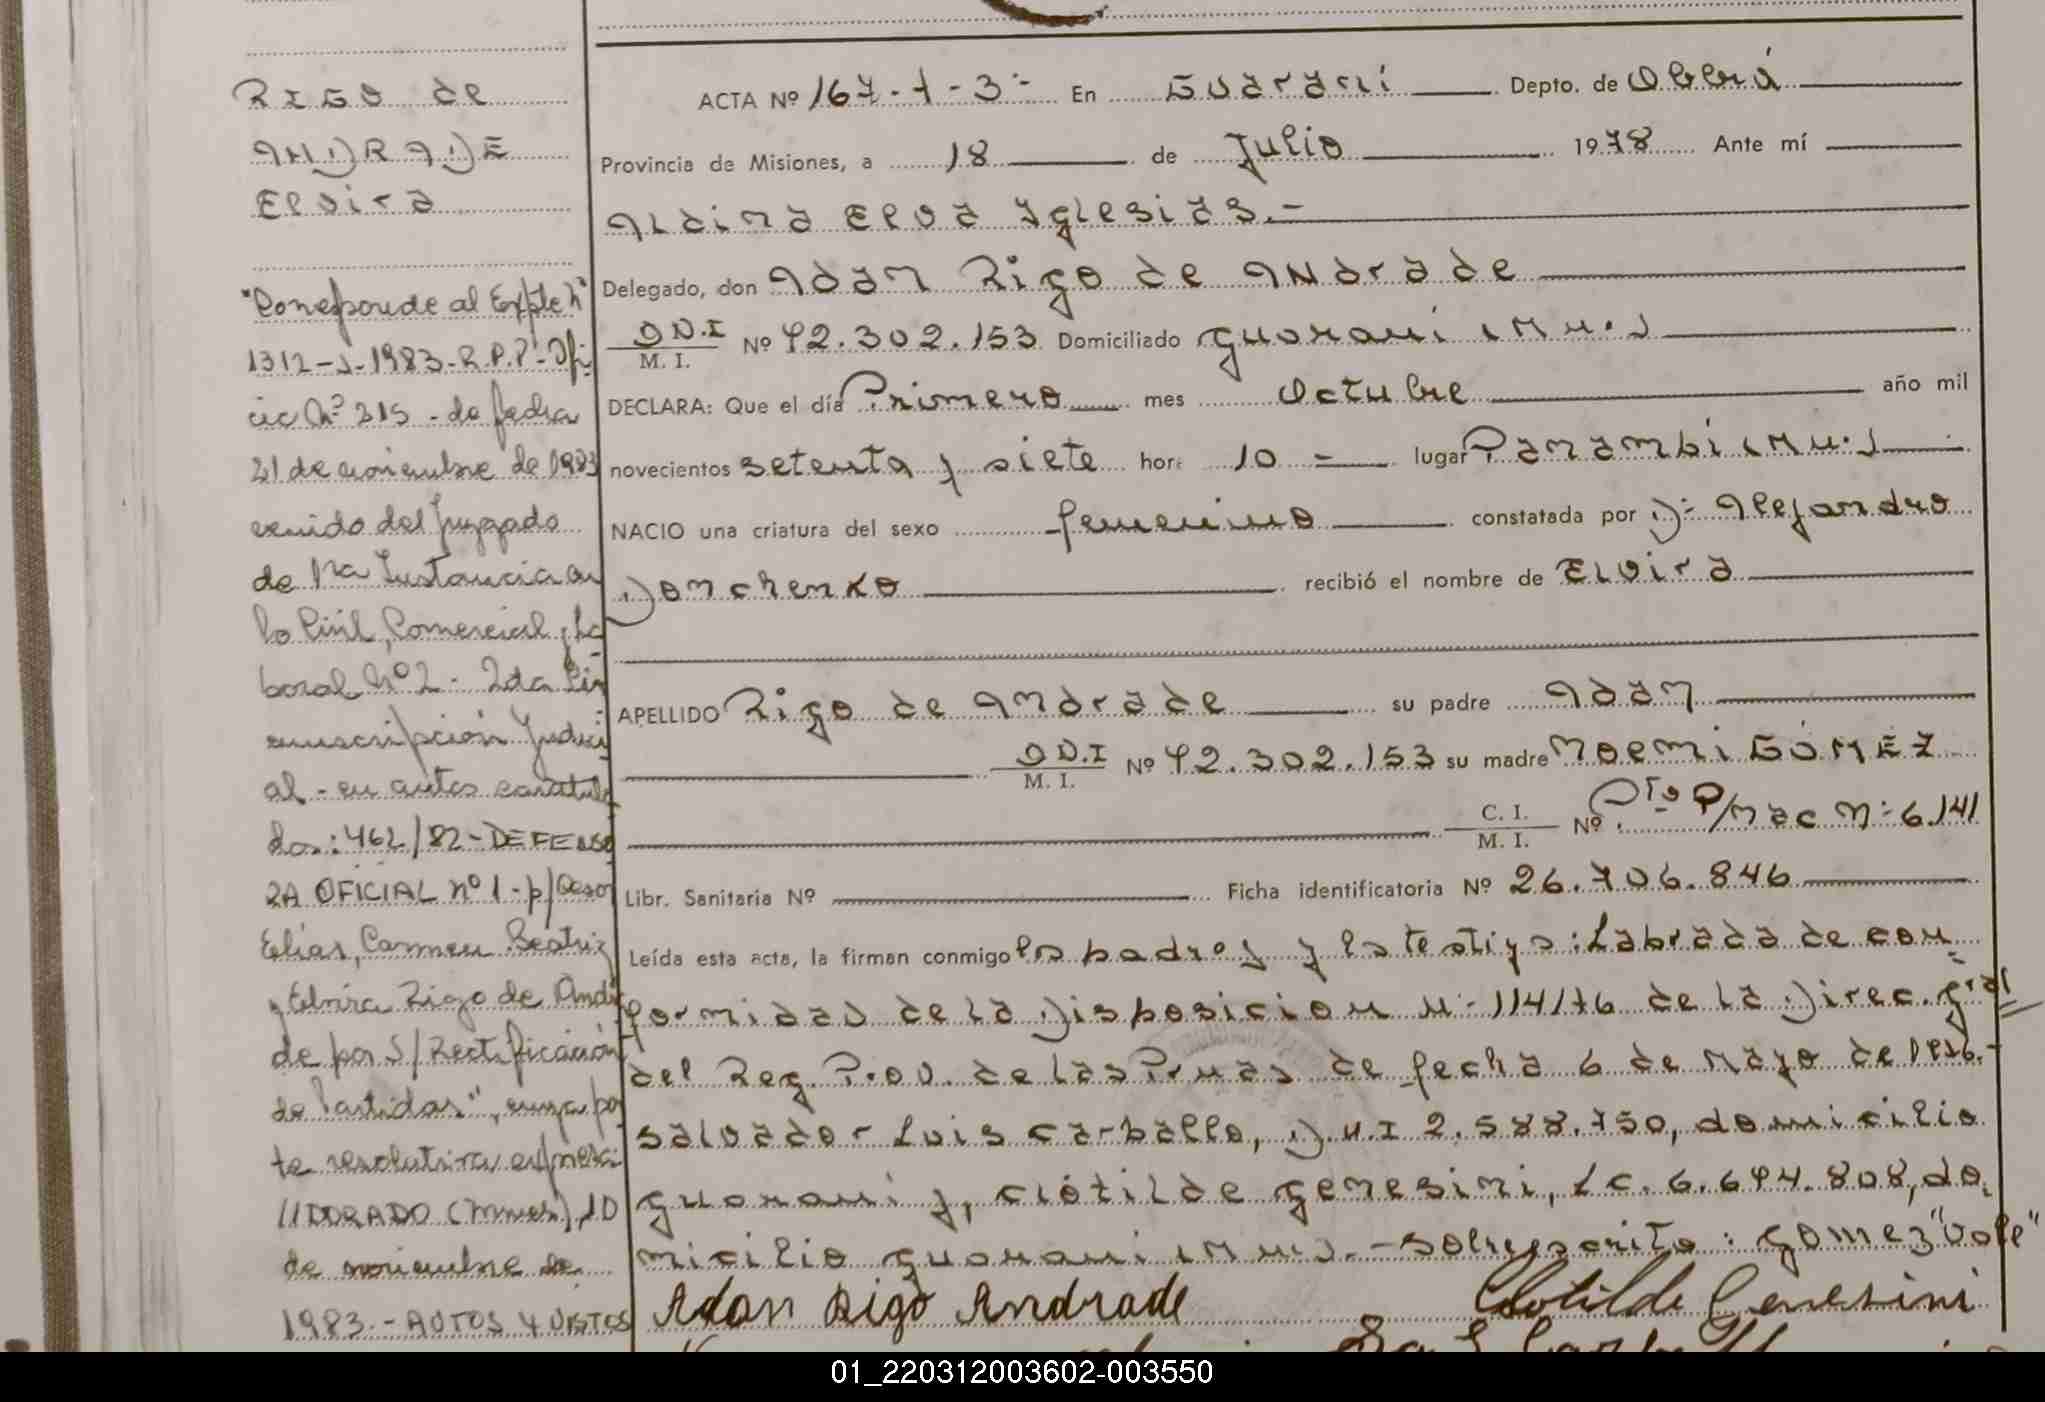 RIGO de
ANDRADE
Elvira
"Corresponde al Expte Nº
1312-J-1983-R.P.P.-Ofi-
cio Nº 315 - de fecha
21 de noviembre de 1983
venido del Juzgado
de 1ra Instancia en
lo Civil, Comercial y La
boral Nº 2 - 2da Cir
cunscripción Judici
al - en autos caratula
dos: 462/82 - DEFENSO
RA OFICIAL nº 1 - p/
Elias, Carmen Beatriz
y Elvira Rigo de Andra
de por S/ Rectificación
de Partidas", cuya par
te resolutiva expresa:
//DORADO (Mnes), 10
de noviembre de
1983.- AUTOS Y VISTOS
ACTA Nº 167-T-3º- En Guaraní Depto. de Oberá
Provincia de Misiones, a 18 de Julio 1978 Ante mí
Aldina Elva Yglesias.-
Delegado, don Adan Rigo de Andrade
D.N.I M. I. Nº 92.302.153 Domiciliado Guarani (Mns.)
DECLARA: Que el día Primero mes Octubre año mil
novecientos setenta y siete hora 10 - lugar Panambí (Mns.)
NACIO una criatura del sexo femenino constatada por D: Alejandro
Donchenko recibió el nombre de Elvira
APELLIDO Rigo de Andrade su padre Adan
D.N.I M. I. Nº 92.302.153 su madre Noemi GÓMEZ
C. I. M. I. Nº Pto P/nac Nº 6.141
Libr. Sanitaria Nº Ficha identificatoria Nº 26.706.846
Leída esta acta, la firman conmigo los padres y los testigos: Labrada de con
formidad de la Disposicion Nº 114/76 de la Direc. gral
del Reg. Prov. de las Prnas de fecha 6 de Mayo de 1976.-
Salvador Luis Carballo, D.N.I 2.588.750, domicilio
Guarani y, Clótilde Genesini, L.C. 6.694.808, do
micilio Guarani (Mns).- Sobreescrito: Gomez "Vale"
Adan Rigo Andrade Clotilde Genesini
01_220312003602-003550